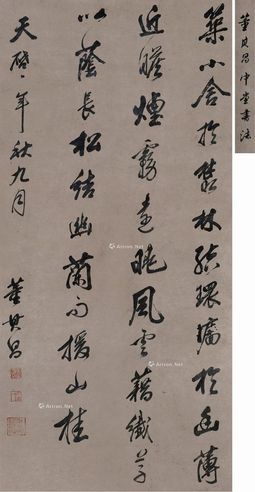 董其昌中堂書法
築小舍於叢林環堵於幽薄
近瞻煙霧遠眺風雲藉纖草
以蔭長松結幽蘭而援山桂
天啓年秋九月
董其昌
Artron.Net
Artron.Net
Artron.Net